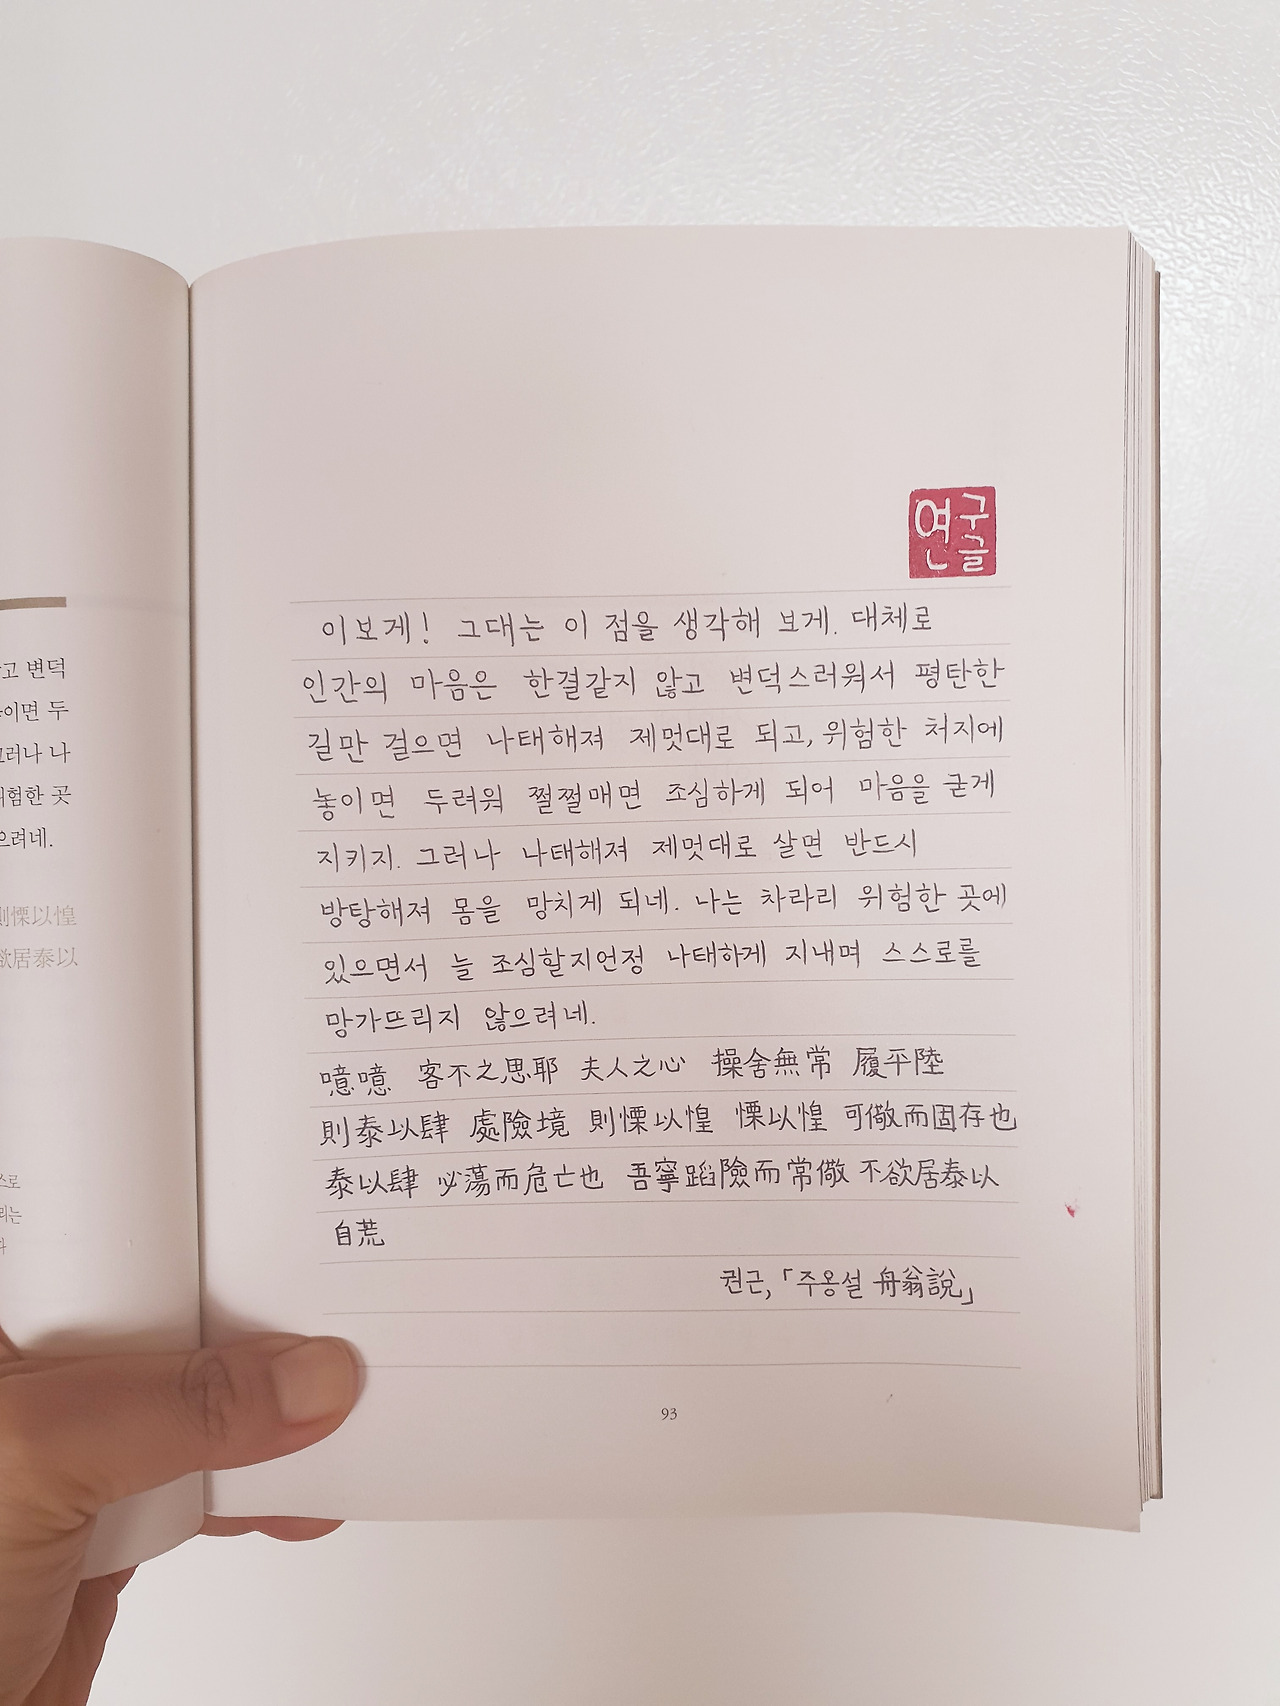 고 변덕
이면 두
그러나 나
험한 곳
으려네.
則慄以惶
欲居泰以
연구글
이보게! 그대는 이 점을 생각해 보게. 대체로
인간의 마음은 한결같지 않고 변덕스러워서 평탄한
길만 걸으면 나태해져 제멋대로 되고, 위험한 처지에
놓이면 두려워 쩔쩔매면 조심하게 되어 마음을 굳게
지키지. 그러나 나태해져 제멋대로 살면 반드시
방탕해져 몸을 망치게 되네. 나는 차라리 위험한 곳에
있으면서 늘 조심할지언정 나태하게 지내며 스스로를
망가뜨리지 않으려네.
噫噫 客不之思耶 夫人之心 操舍無常 履平陸
則泰以肆 處險境 則慄以惶 慄以惶 可儆而固存也
泰以肆 必蕩而危亡也 吾寧蹈險而常儆 不欲居泰以
自荒
권근,「주옹설 舟翁說」
93